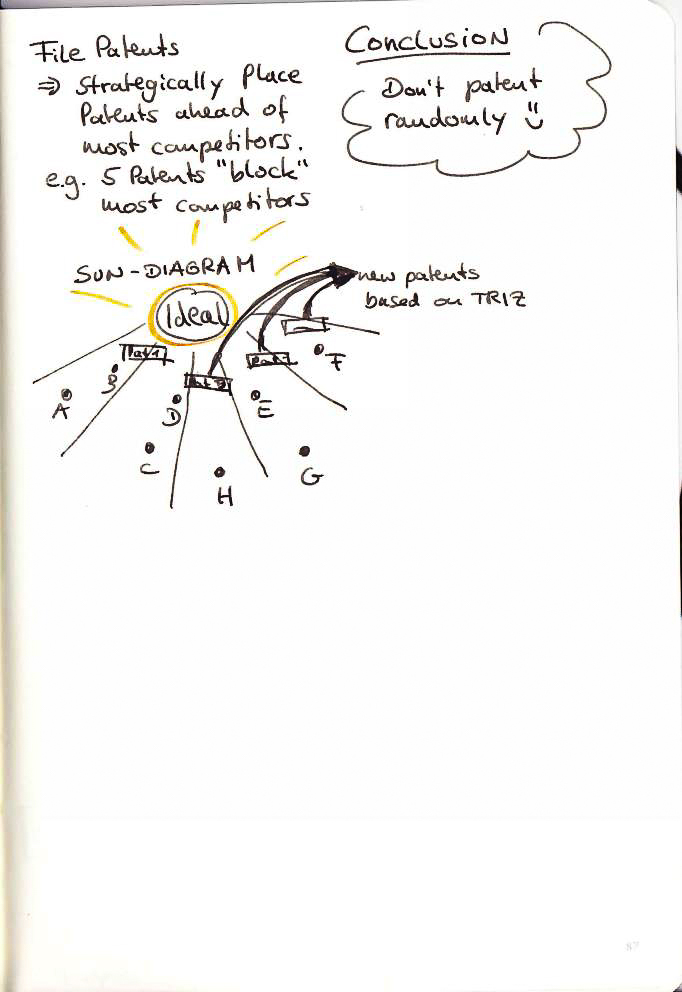 File Patents
⇒ Strategically Place
Patents ahead of
most competitors.
e.g. 5 Patents "block"
most competitors
Conclusion
Don't patent
randomly ಠ
SUN-DIAGRAM
Ideal
new patents
based on TRIZ
Pat 1
A
B
C
D
E
F
G
H
87